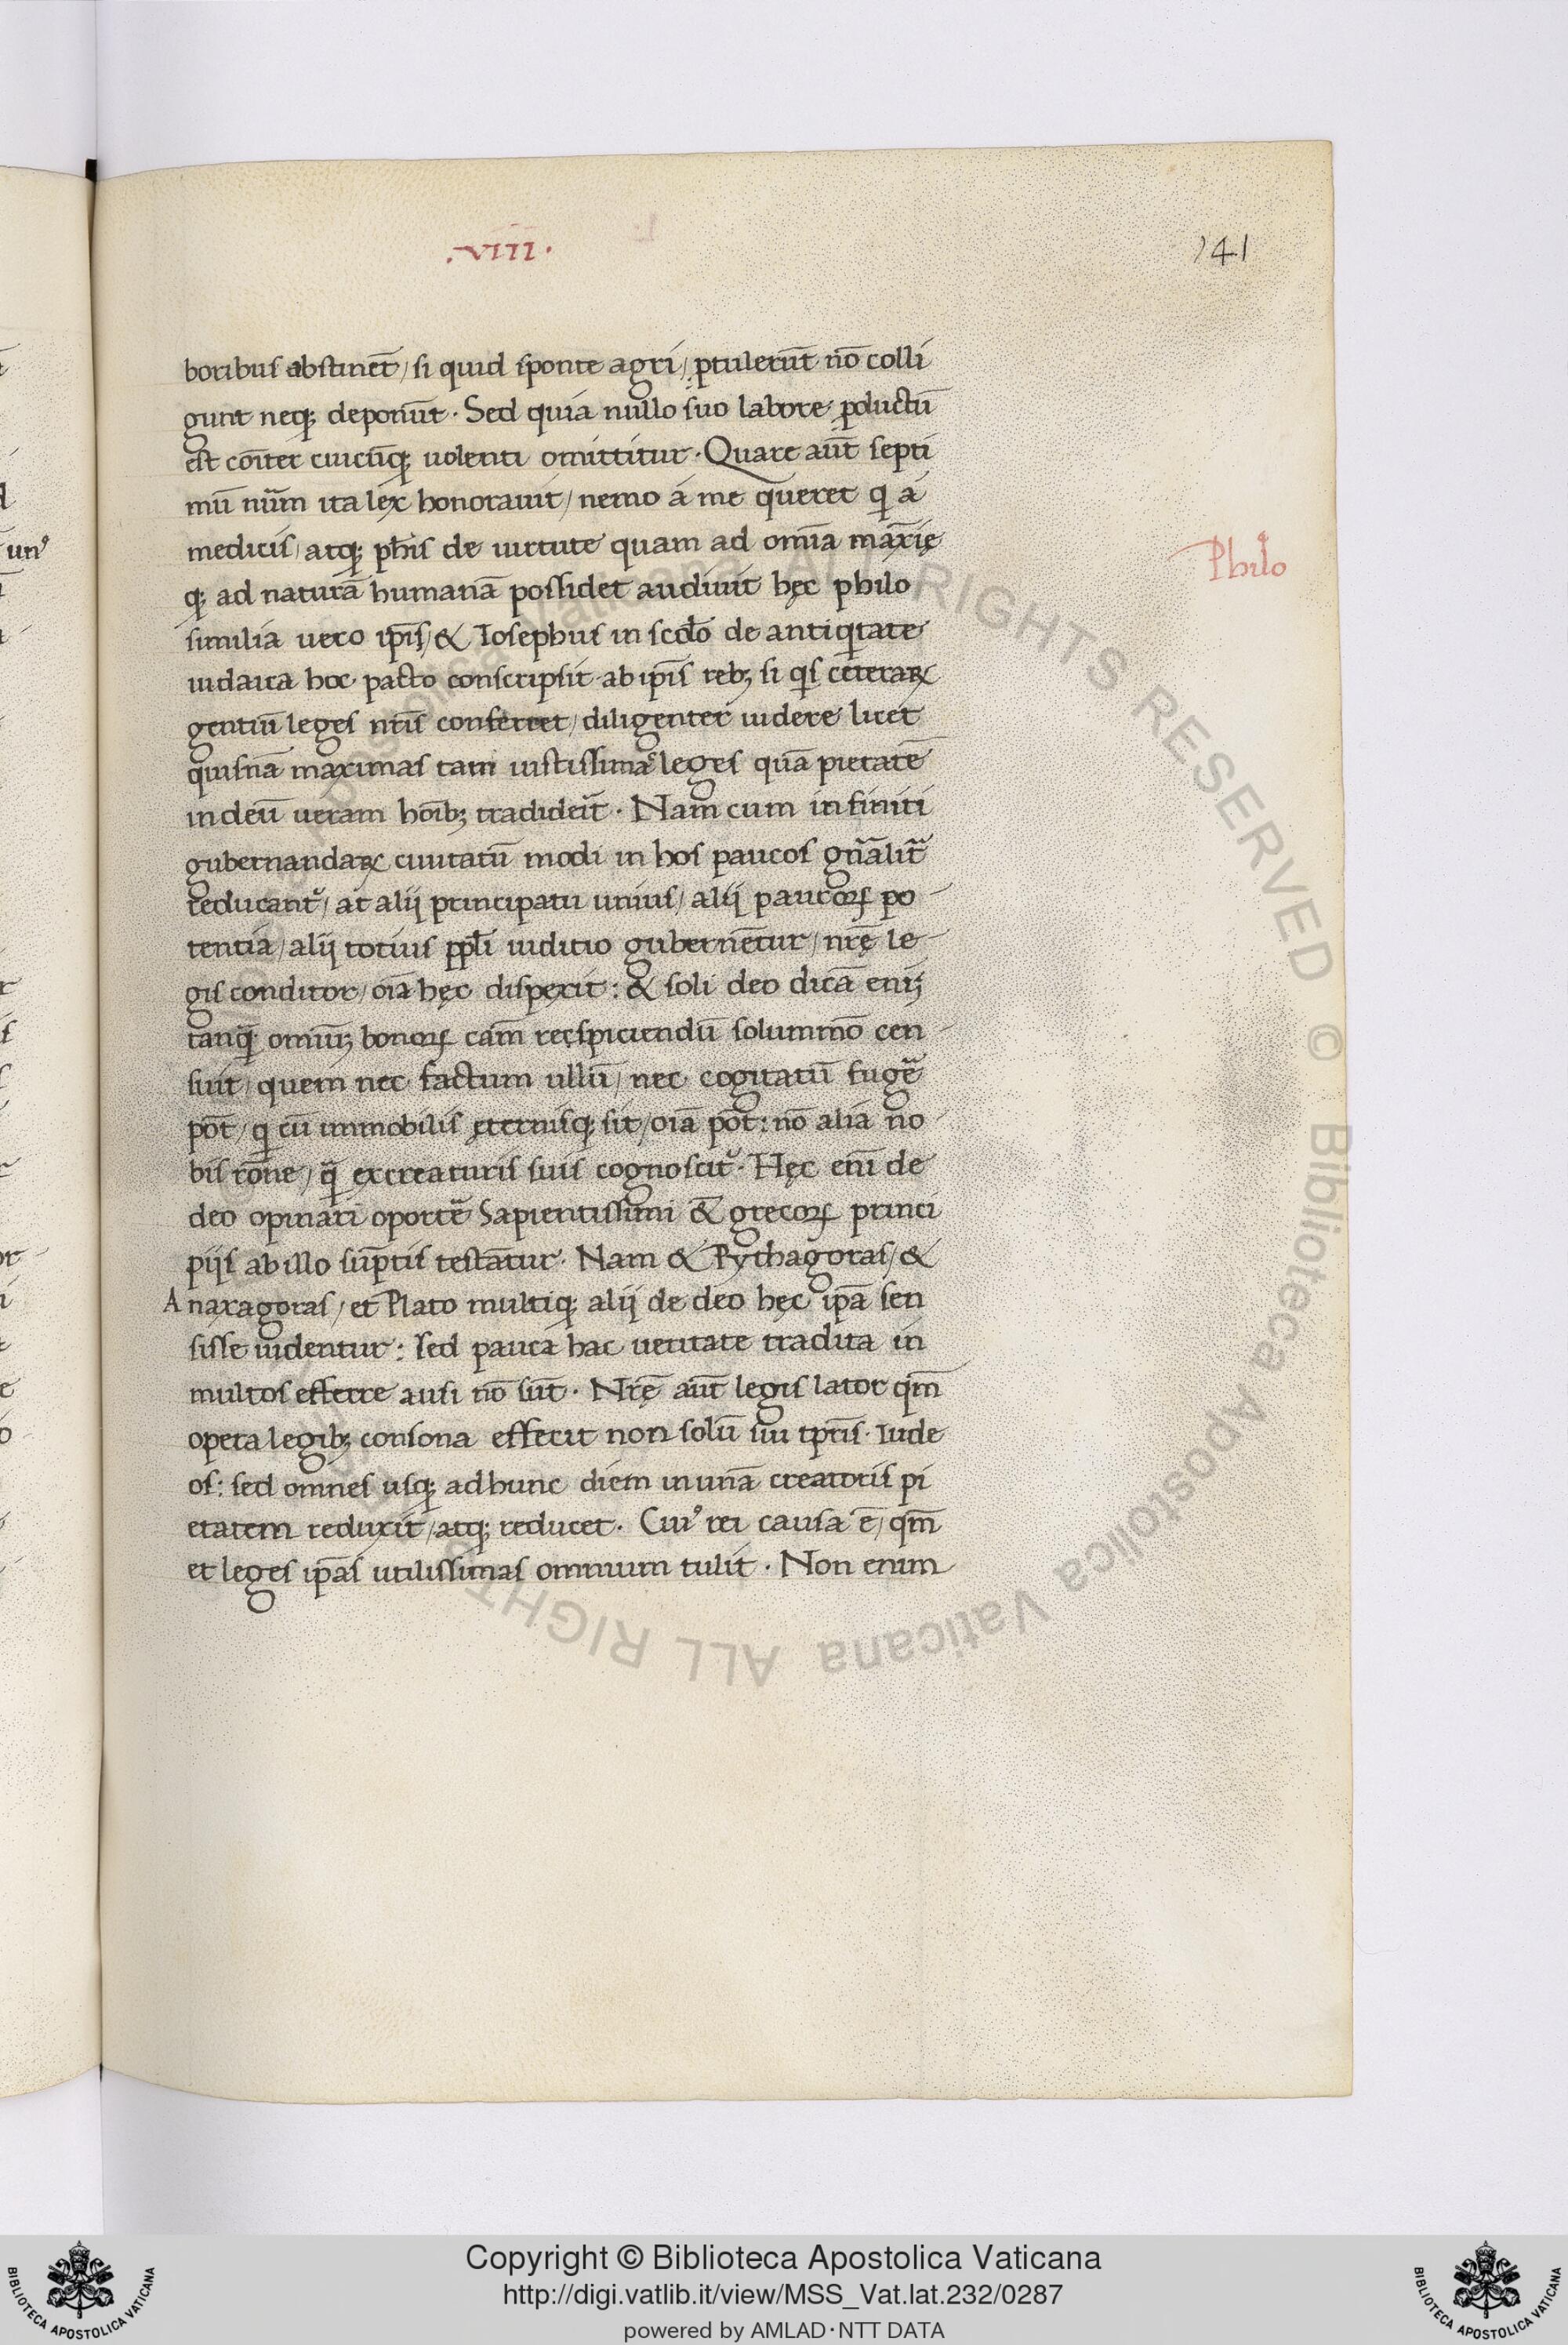 .VIII.
141
boribus abstinēt / si quid sponte agri / ꝓtulerūt nō colli
gunt neqꝫ deponūt · Sed quia nullo suo labore ꝓductū
est cōiter cuicūqꝫ uolenti omittitur · Quare aūt septi
mū nūm ita lex honorauit / nemo á me queret q̄ á
medicis / atqꝫ ph̄is de uirtute quam ad omīa māxīe
qꝫ ad naturā humanā possidet audiuit hęc philo
Philo
similia uero ip̄is / & Iosephus in scd̄o de antiq̄tate
iudaica hoc pacto conscripsit · ab ip̄is rebꝫ si q̄s ceterarꝝ
gentiū leges nr̄is conferret / diligenter uidere licet
quisnā maximas tam iustissimas leges quā pietatē
in deū ueram hoībꝫ tradideīt · Nam cum infiniti
gubernandarꝝ ciuitatū modi in hos paucos gn̄alit̄
reducant᷑ / at alij principatu unius / alij paucorꝝ po
tentia / alij totius pp̄li iuditio gubernētur / nrę̄ le
gis conditor / oīa hęc dispexit : & soli deo dicā enīꝫ
tanq̄ omīuꝫ bonorꝝ cām respiciendū solummō cen
suit / quem nec factum ullū / nec cogitatū fugē
pōt / q̄ cū immobilis ęternisqꝫ sit / oīa pōt : nō alia no
bis rōne / q̄ ex creaturis suis cognoscit᷑ · Hęc enī de
deo opinari oportē Sapientissimi & grecorꝝ princi
pijs ab illo sūptis testātur · Nam & Pythagoras / &
Anaxagoras / et Plato multiqꝫ alij de deo hęc ip̄a sen
sisse uidentur : sed pauca hac ueritate tradita in
multos efferre ausi nō sūt · Nrę̄ aūt legis lator qm̄
opera legibꝫ consona effecit non solū sui tp̄ris · Iude
os : sed omnes usqꝫ ad hunc diem in unā creatoris pi
etatem reduxit / atqꝫ reducet · Cuiꝰ rei causa ē / qm̄
et leges ip̄as utilissimas omnium tulit · Non enim
Copyright © Biblioteca Apostolica Vaticana
http://digi.vatlib.it/view/MSS_Vat.lat.232/0287
powered by AMLAD·NTT DATA